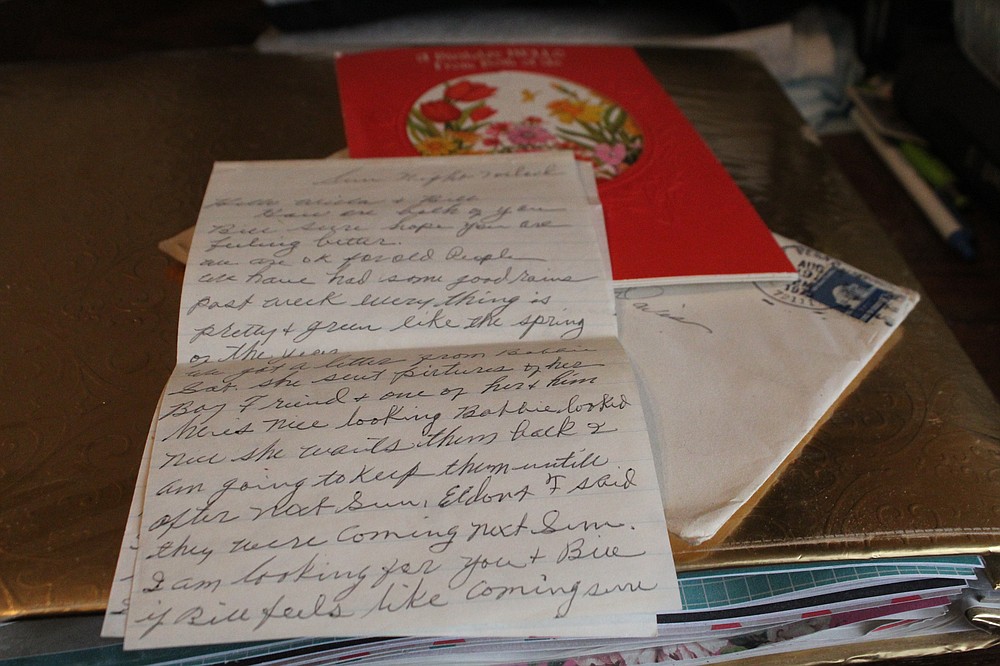 A Birthday HELLO
From Both of Us
Sun Night
Hello & Bill
How are both of you
Bill sure hope you are
feeling better.
we are ok for old People
we have had some good rains
past week every thing is
pretty & green like the spring
of the year
we got a letter from Bobbie
Sat. she sent pictures of her
Boy Friend & one of her & him
heres nice looking Bobbie looked
nice she waits them back &
am going to keep them untill
after next Sun. Eldont & F said
they were coming next Sun.
I am looking for you & Bill
if Bill feels like coming sure
AUG